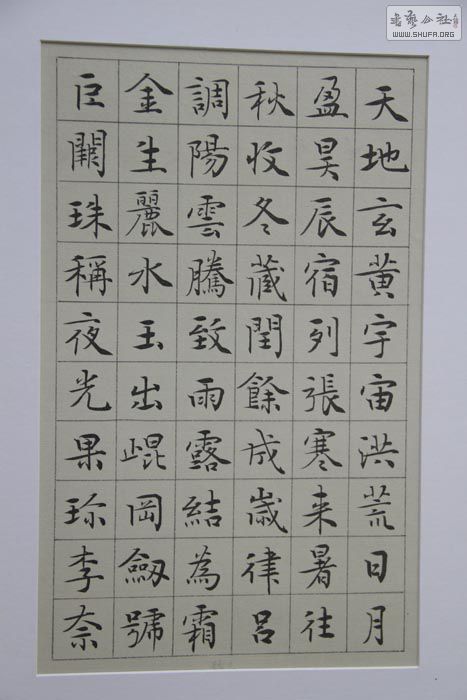 書藝公社
WWW.SHUFA.ORG
天地玄黄宇宙洪荒日月
盈昃辰宿列張寒来暑往
秋收冬藏閏餘成歲律呂
調陽雲騰致雨露結為霜
金生麗水玉出崐岡劒號
巨闕珠稱夜光果珎李奈